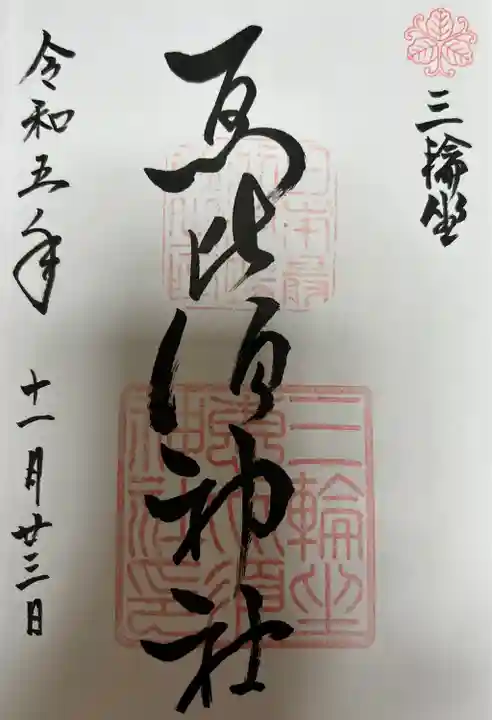 三輪坐
恵比須神社
令和五年 十一月廿三日
日本最
三輪坐
恵比須
神社印